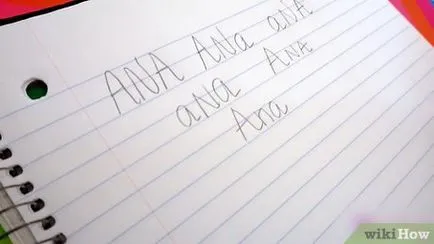 ANA ANa aNA
aNa ANA
Ana
wikiHow